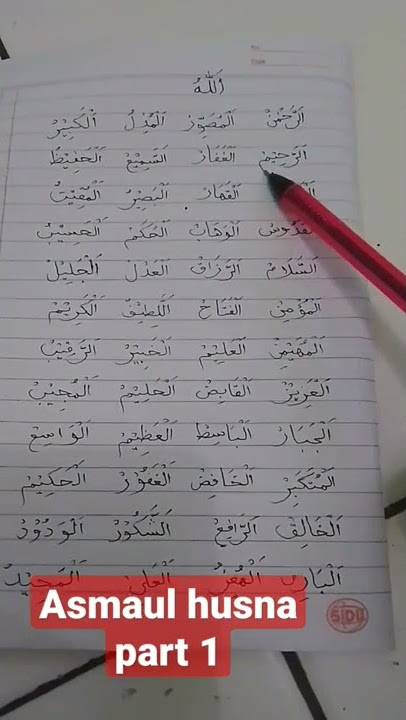 اَللّٰهُ
اَلرَّحْمٰنُ اَلْمُصَوِّرُ اَلْمُذِلُّ اَلْكَبِيْرُ
اَلرَّحِيْمُ اَلْغَفَّارُ اَلسَّمِيْعُ اَلْحَفِيْظُ
اَلْقَهَّارُ اَلْبَصِيْرُ اَلْمُقِيْتُ
اَلْقُدُّوْسُ اَلْوَهَّابُ اَلْحَكَمُ اَلْحَسِيْبُ
اَلسَّلَامُ اَلرَّزَّاقُ اَلْعَدْلُ اَلْجَلِيْلُ
اَلْمُؤْمِنُ اَلْفَتَّاحُ اَللَّطِيْفُ اَلْكَرِيْمُ
اَلْمُهَيْمِنُ اَلْعَلِيْمُ اَلْخَبِيْرُ اَلرَّقِيْبُ
اَلْعَزِيْزُ اَلْقَابِضُ اَلْحَلِيْمُ اَلْمُجِيْبُ
اَلْجَبَّارُ اَلْبَاسِطُ اَلْعَظِيْمُ اَلْوَاسِعُ
اَلْمُتَكَبِّرُ اَلْخَافِضُ اَلْغَفُوْرُ اَلْحَكِيْمُ
اَلْخَالِقُ اَلرَّافِعُ اَلشَّكُوْرُ اَلْوَدُوْدُ
اَلْبَارِئُ اَلْمُعِزُّ اَلْعَلِيُّ اَلْمَجِيْدُ
Asmaul husna
part 1
SIDU